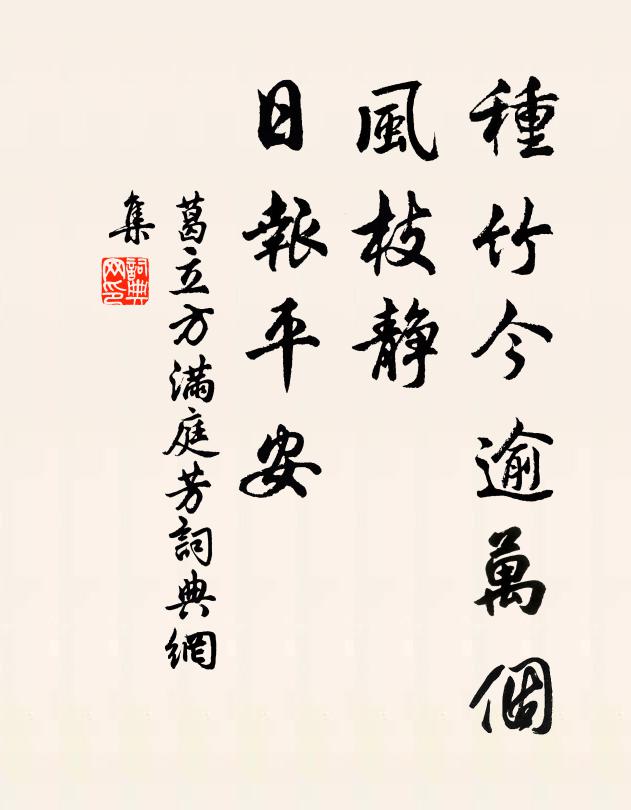 種竹今逾萬個
風枝靜
日報平安
葛立方滿庭芳詞典網
集
詞典
网印